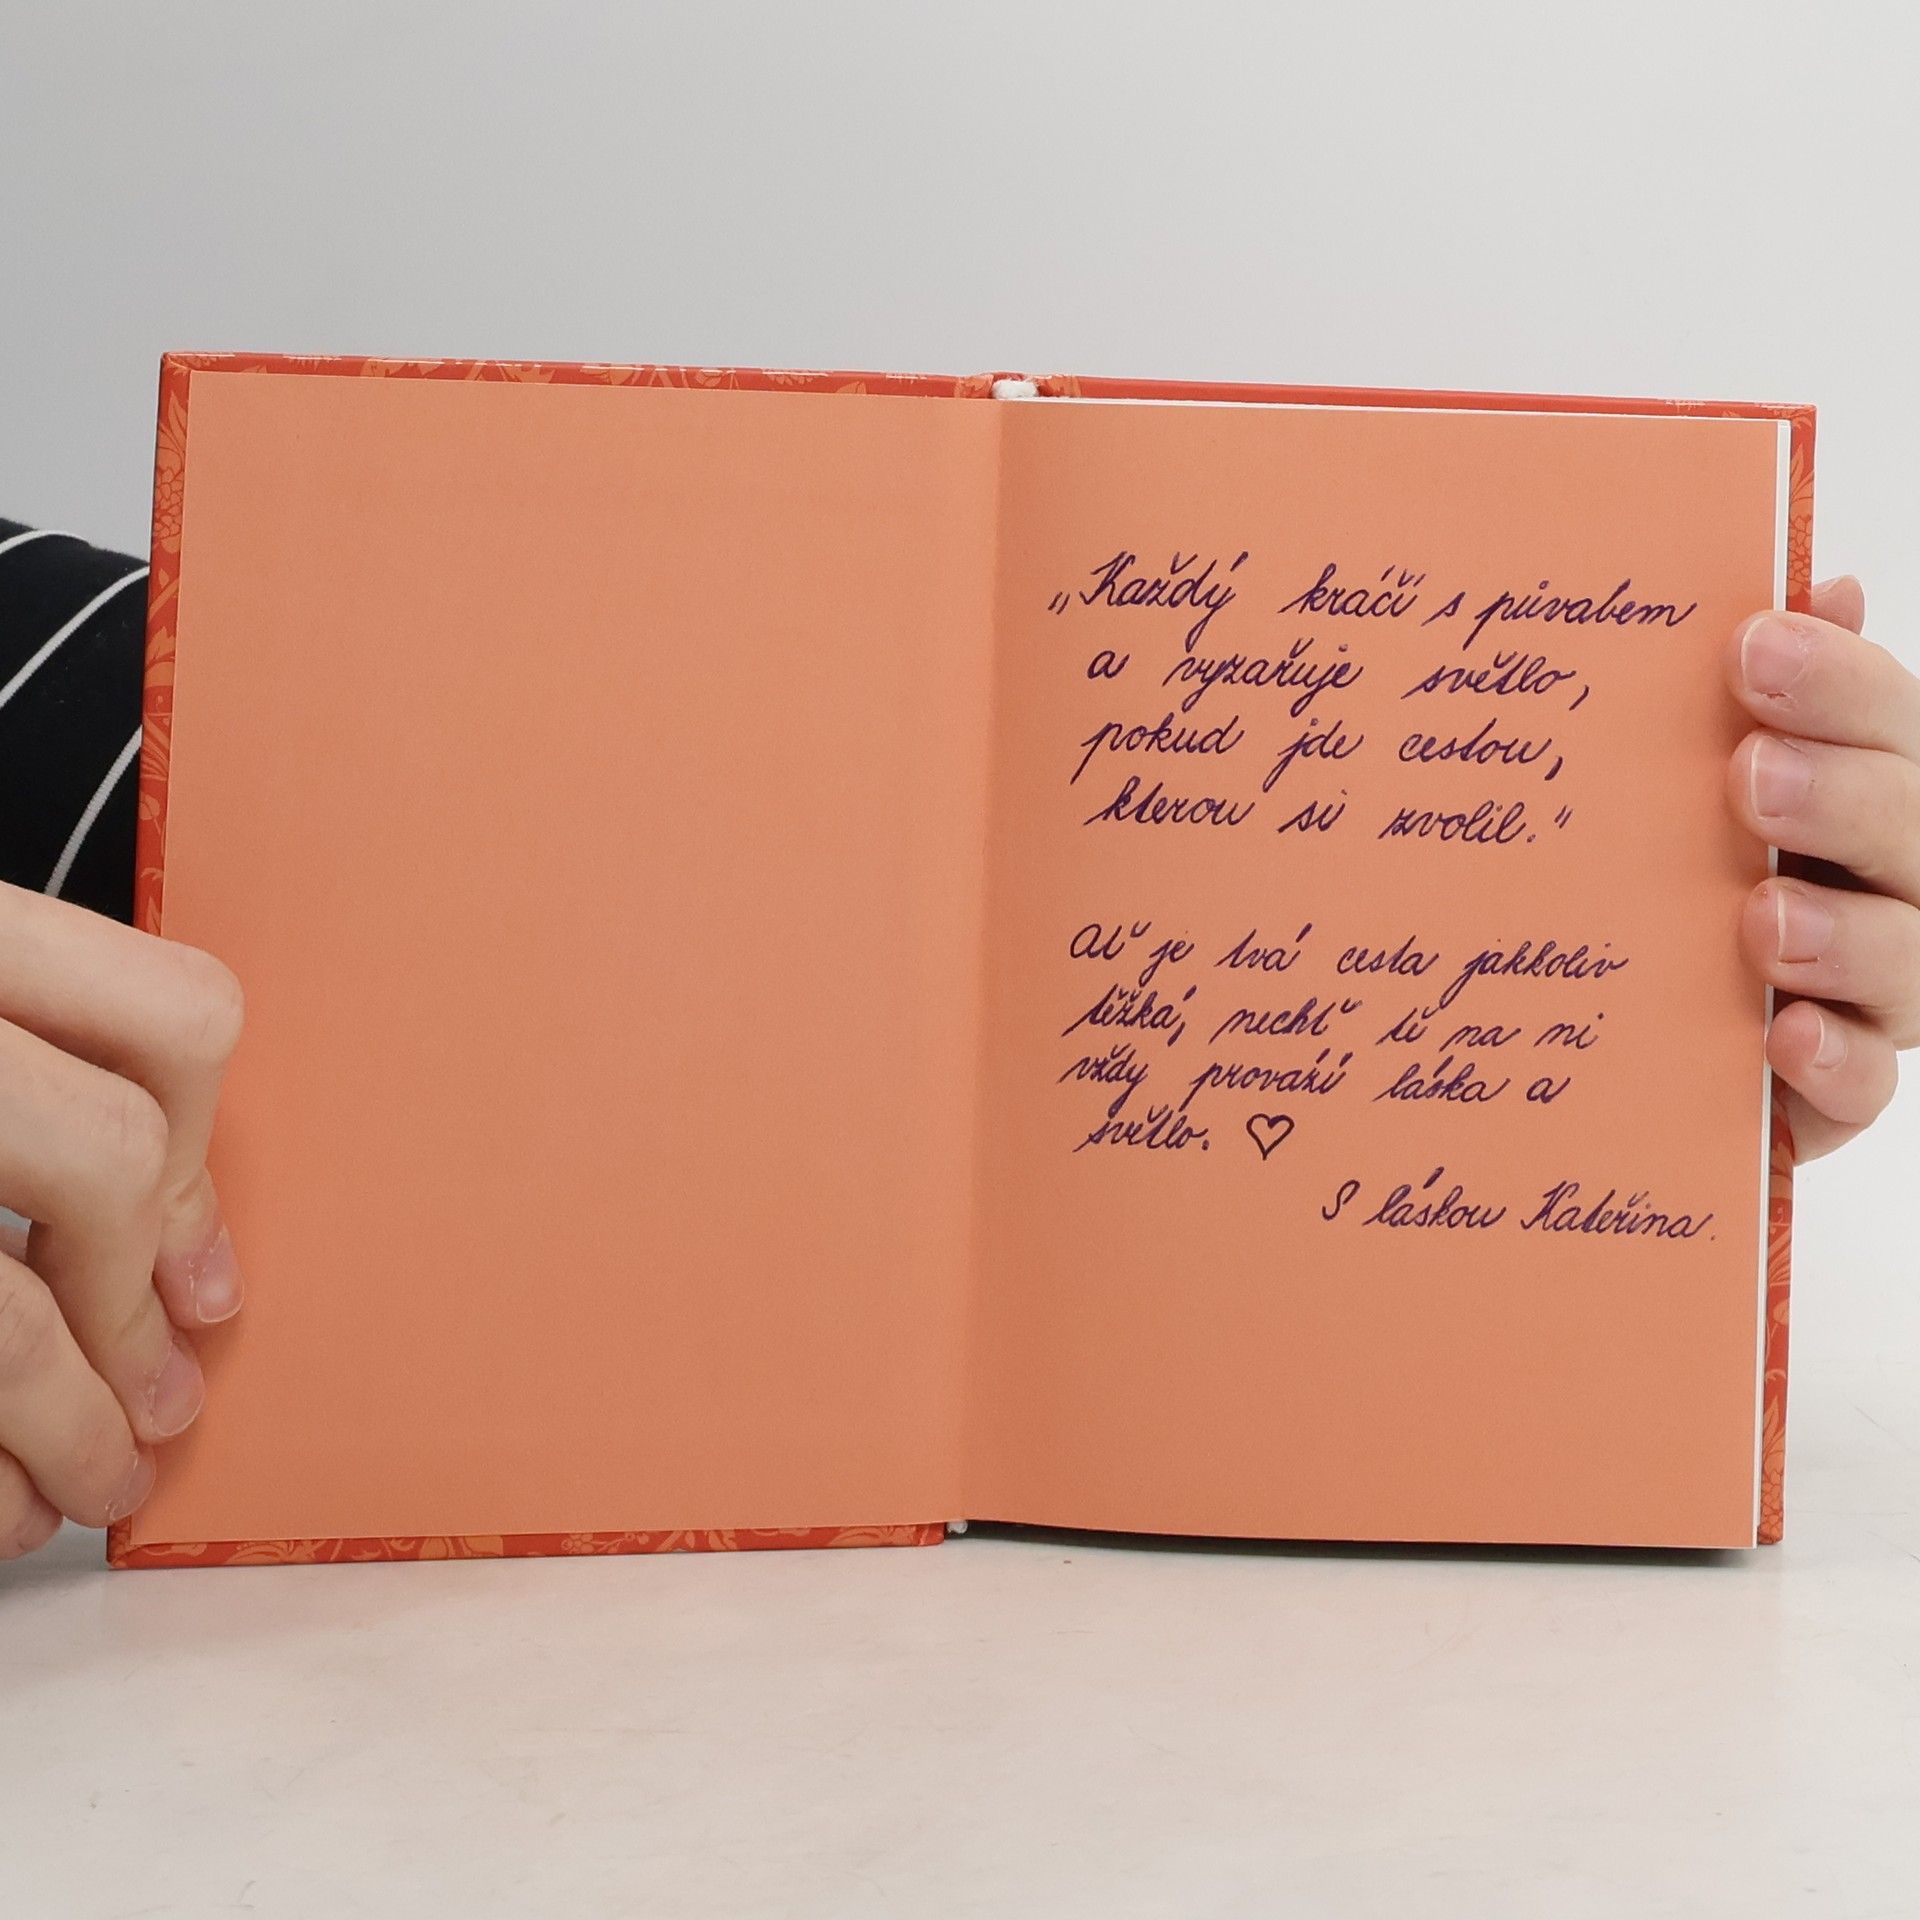 „Každý kráčí s půvabem
a vyzařuje světlo,
pokud jde cestou,
kterou si zvolil."
Ať je tvá cesta jakkoliv
těžká, nechť tě na ní
vždy provází láska a
světlo. ♡
S láskou Kateřina.